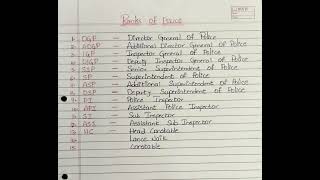 Ranks of Police
1. DGP — Director General of Police
2. ADGP — Additional Director General of Police
3. IGP — Inspector General of Police
4. DIGP — Deputy Inspector General of Police
5. SSP — Senior Superintendent of Police
6. SP — Superintendent of Police
7. ASP — Additional Superintendent of Police
8. DSP — Deputy Superintendent of Police
9. PI — Police Inspector
10. API — Assistant Police Inspector
11. SI — Sub Inspector
12. ASI — Assistant Sub Inspector
13. HC — Head Constable
14. Lance Naik
15. Constable